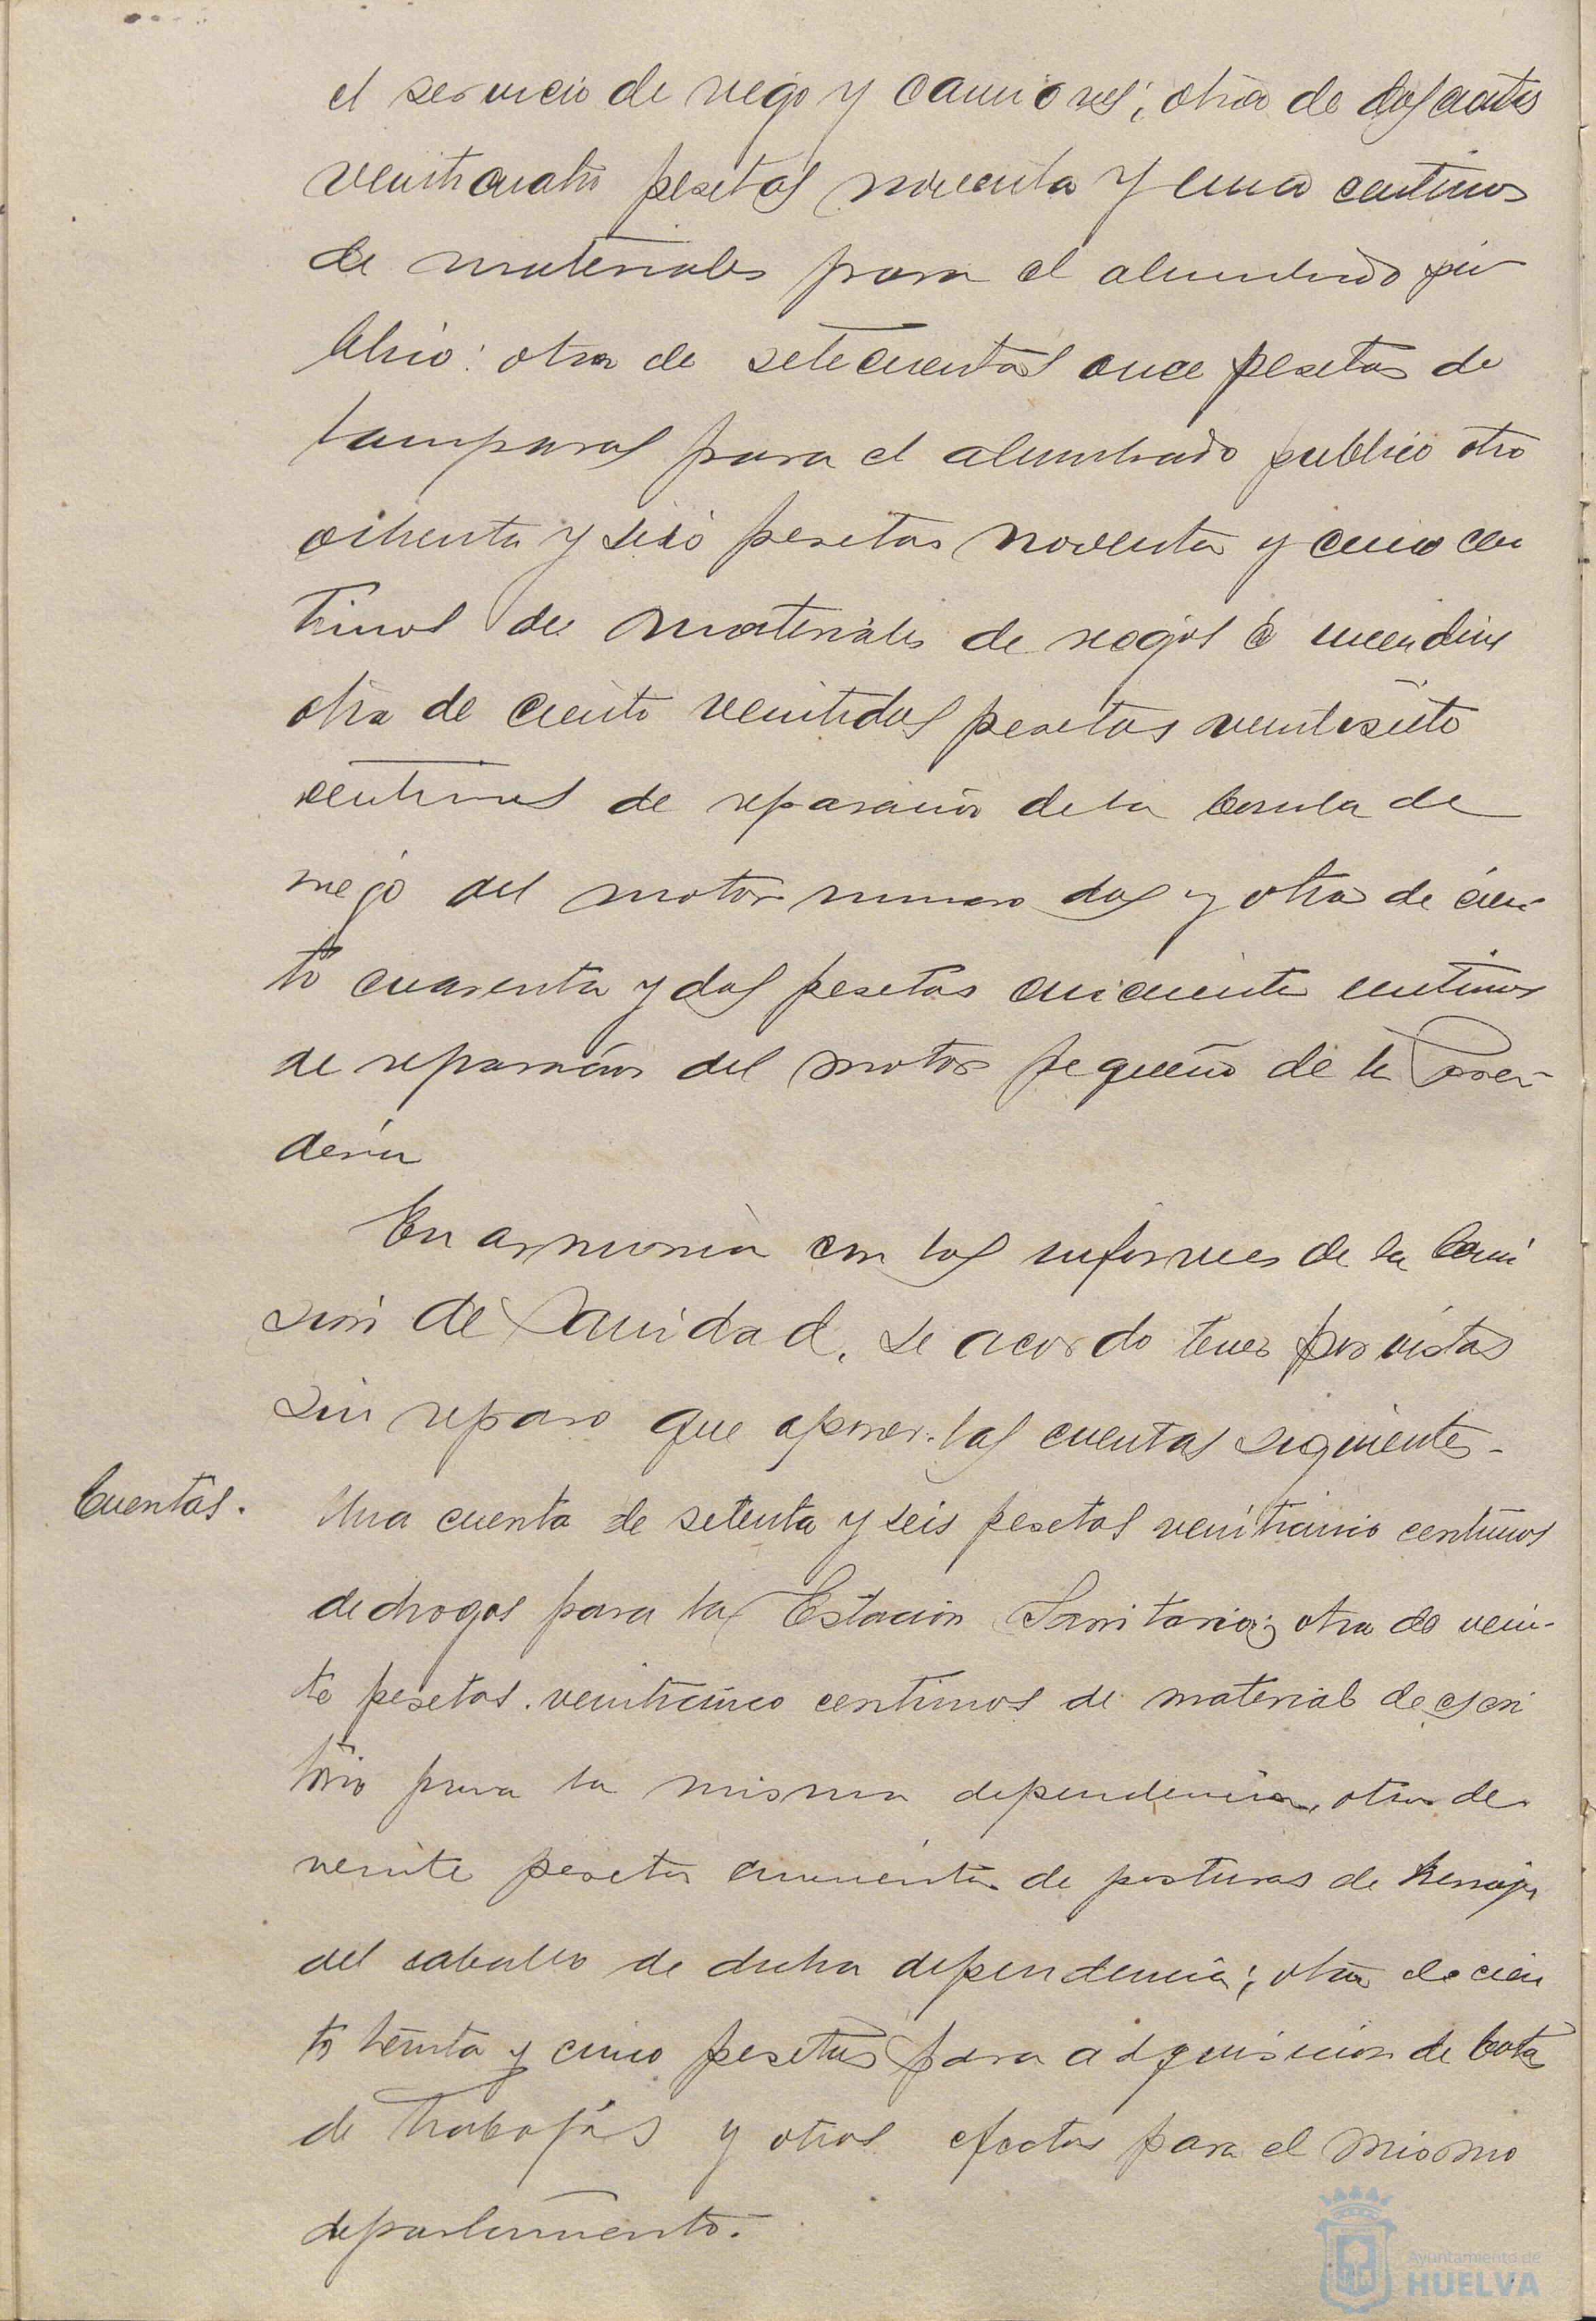 el servicio de riego y camiones; otra de doscientas
veinticuatro pesetas noventa y una centimos
de materiales para el alumbrado pú
blico: otra de setecientas once pesetas de
lamparas para el alumbrado publico otra
ochenta y seis pesetas noventa y cinco cen
timos de materiales de riegos é incendios
otra de ciento veintidos pesetas veintisiete
centimos de reparación de la de
riego del motor numero dos y otra de cien-
to cuarenta y dos pesetas cincuenta centimos
de reparación del motor pequeño de la Pana-
deria
En armonia con los informes de la Comi
sión de Sanidad, se acordo tener por vistas
sin reparo que oponer las cuentas siguientes-
Cuentas.
Una cuenta de setenta y seis pesetas veinticinco centimos
de drogas para la Estación Sanitaria; otra de vein-
te pesetas veinticinco centimos de material de escri
torio para la misma dependencia, otra de
veinte pesetas cincuenta de posturas de herrajes
del caballo de dicha dependencia; otra de cien
to treinta y cinco pesetas para adquisicion de botas
de trabajos y otros efectos para el mismo
departamento.
Ayuntamiento de
HUELVA